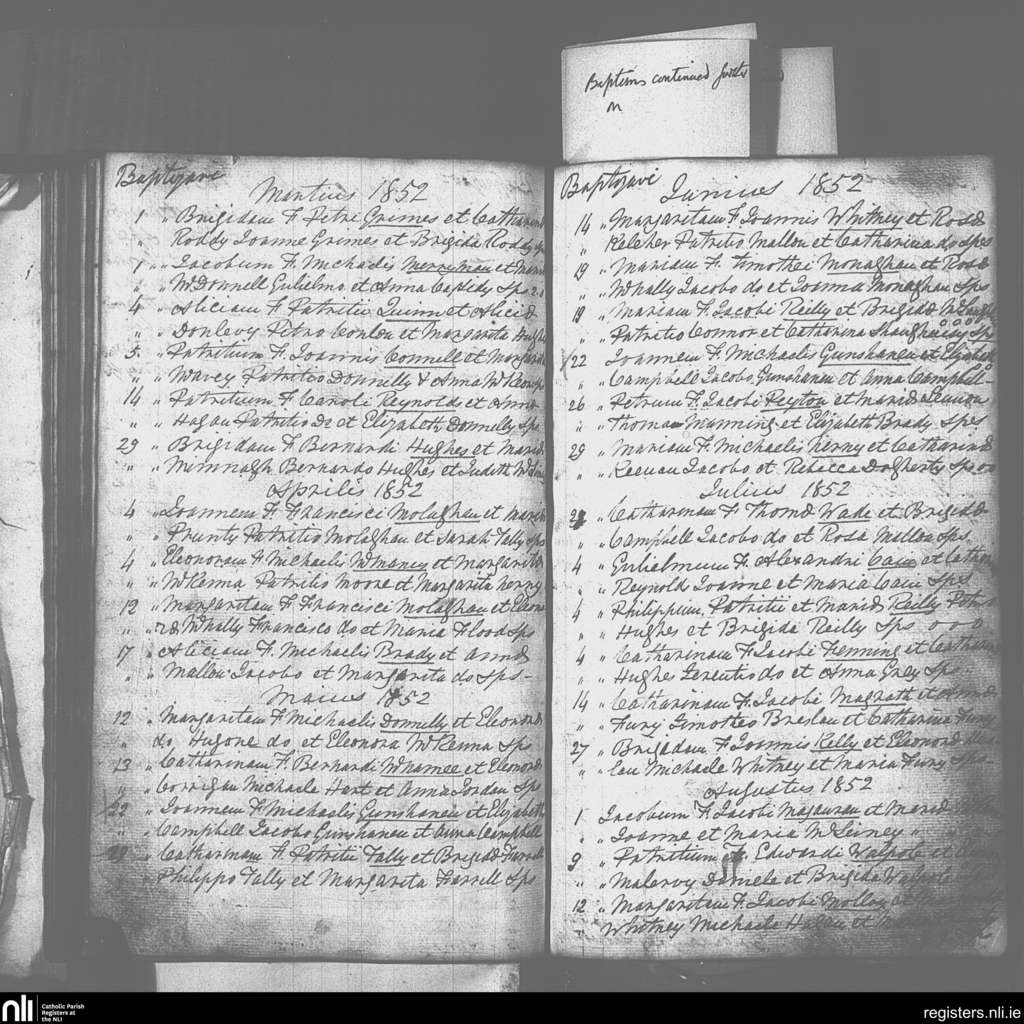 Baptisms continued further
on
Baptizavi
Martius 1852
1 " Brigidam F. Petri Grimes et Catharin
" Roddy Joanne Grimes et Brigida Roddy Sps
1 " Jacobum F. Michaelis Merryman et Maria
" " McDonnell Gulielmo et Anna Cassidy Sps
4 " Aliciam F. Patritii Quinn et Alicia
" " Donlevy Petro Conlon et Margarita
5 " Patritium F. Joannis Connell et Margarita
" " Patritio Donnelly & Anna McKeon Sps
14 " Patritium F. Caroli Reynolds et Anna
" " Hagan Patritio Do et Elizabeth Donnelly Sps
29 " Brigidam F. Bernardi Hughes et Maria
" " Mimnagh Bernardo Hughes et Judith
Aprilis 1852
4 " Joannem F. Francisci Molaghan et Maria
" " Prunty Patritio Molaghan et Sarah Tally Sps
4 " Eleonoram F. Michaelis McManus et Margarita
" " McKenna Patritio Moore et Margarita Kerny
12 " Margaritam F. Francisci Molaghan et Eleon
" " McNally Francisco do et Maria Flood Sps
17 " Aliciam F. Michaelis Brady et Anna
" " Mallon Jacobo et Margarita do Sps
Maius 1852
12 " Margaritam F. Michaelis Donnelly et Eleonora
" do, Hugone do et Eleonora McKenna Sps
13 " Catharinam F. Bernardi McNamee et Eleonora
" Corrigan Michaele Hart et Anna Jordan Sps
22 " Joannem F. Michaelis Gunshanan et Elizabeth
" " Campbell Jacobo Gunshanan et Anna Campbell
29 " Catharinam F. Patritii Tally et Brigida Farrell
" Philippo Tally et Margarita Farrell Sps
Baptizavi
Junius 1852
14 " Margaritam F. Joannis Whitney et Rosa
" " Keleher Patritio Mallon et Catharina do Sps
19 " Mariam F. Timothei Monaghan et Rosa
" " McNally Jacobo do et Joanna Monaghan Sps
19 " Mariam F. Jacobi Reilly et Brigida
" " Patritio Connor et Catharina Sps
22 " Joannem F. Michaelis Gunshanan et Elizabeth
" " Campbell Jacobo Gunshanan et Anna Campbell
26 " Petrum F. Jacobi Peyton et Maria Lennon
" " Thoma Manning et Elizabeth Brady Sps
29 " Mariam F. Michaelis Kerny et Catharina
" " Keenan Jacobo et Rebecca Dogherty Sps
Julius 1852
" Catharinam F. Thoma Wade et Brigida
" " Campbell Jacobo do et Rosa Mallon Sps
4 " Gulielmum F. Alexandri Cain et Cath
" Reynold Joanne et Maria Cain Sps
4 " Philippum Patritii et Maria Reilly
" " Hughes et Brigida Reilly Sps
4 " Catharinam F. Jacobi Fenning et Catharina
" " Hughes Terentio do et Anna Grey Sps
14 " Catharinam F. Jacobi Magrath et Anna
" " Fury Timotheo Breslan et Catharina Fury
27 " Brigidam F. Joannis Kelly et Eleonora
" " Michaele Whitney et Maria Fury Sps
Augustus 1852
1 Jacobum F. Jacobi et Maria
" " Joanne et Maria
9 " Patritium F. Edwardi Walpole et
" " Daniele et Brigida Walpole
12 " Margaritam F. Jacobi Mollon et
" Whitney Michaele et
nli
Catholic Parish
Registers at
the NLI
registers.nli.ie